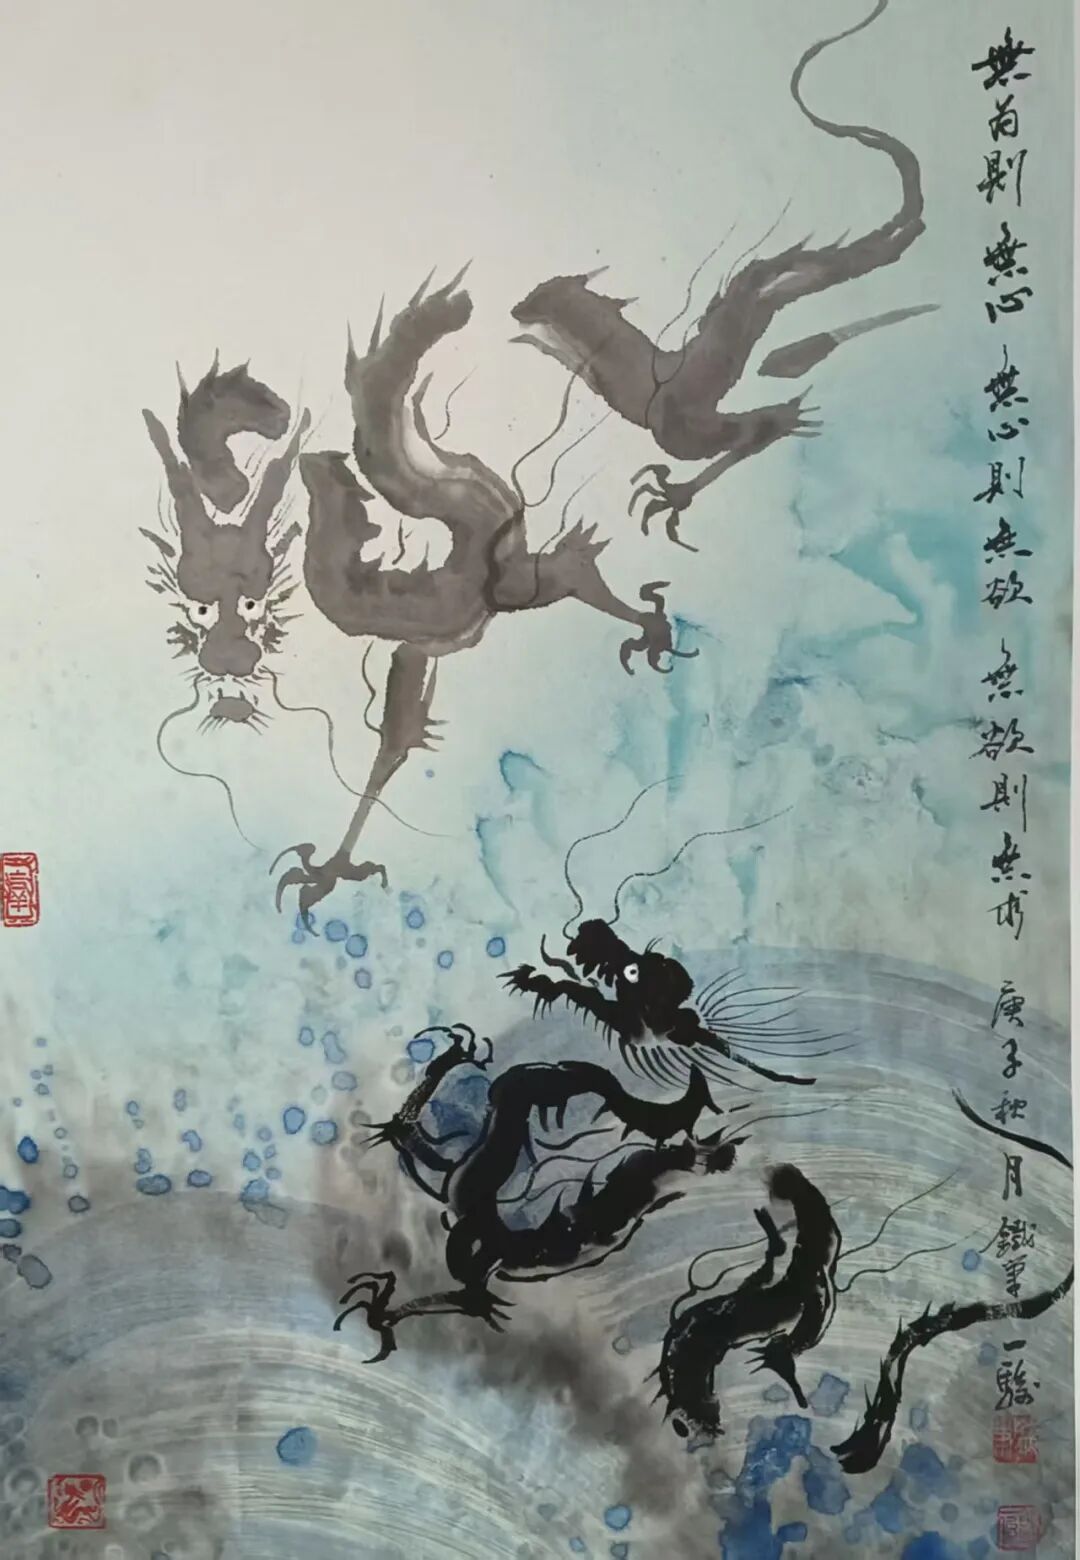 無為則無心無心則無欲無欲則無庚子秋月鐵筆一駿